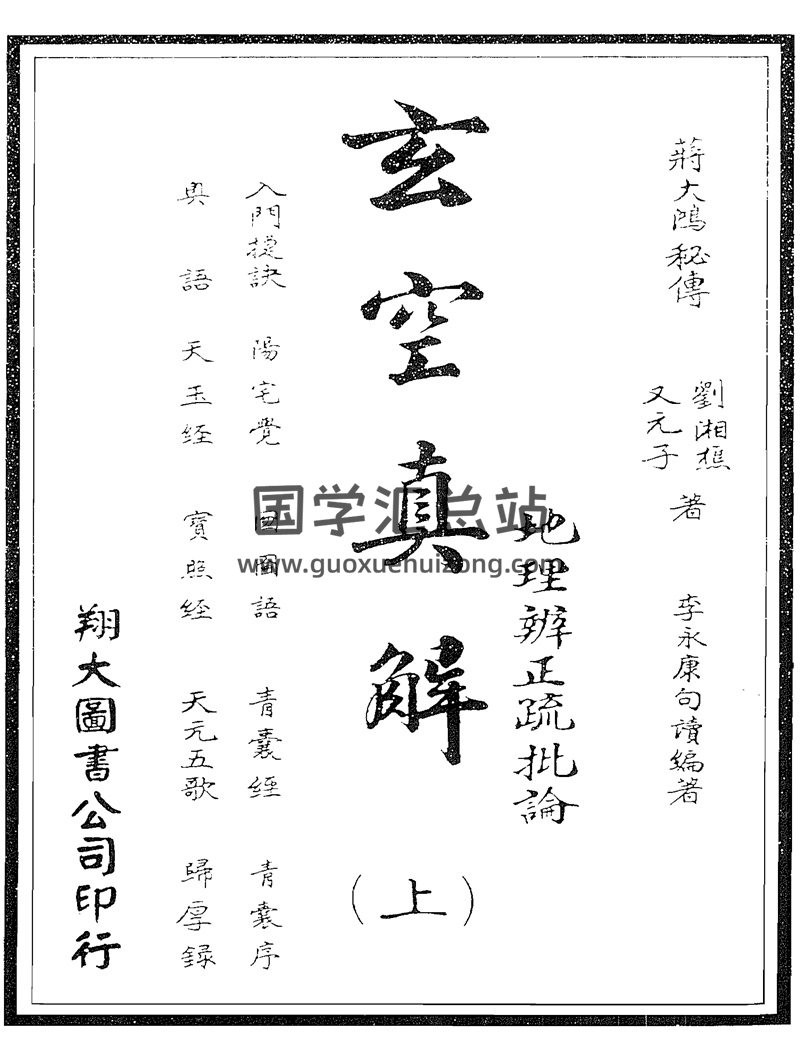 蔣大鴻秘傳
劉湘樵
又元子
著
李永康句讀編著
地理辨正疏批論
玄空真解
(上)
入門捷訣 陽宅覺 圖語 青囊経 青囊序
奥語 天玉経 寶照経 天元五歌 歸厚録
翔大圖書公司印行
国学汇总站
www.guoxuehuizong.com